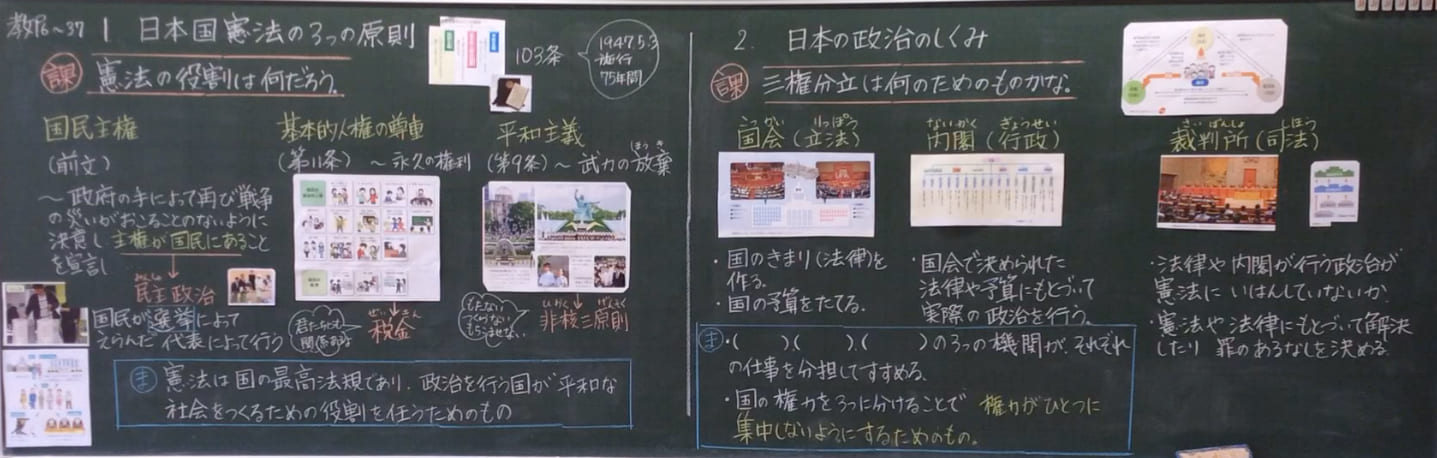 教P6~37
1 日本国憲法の3つの原則
103条
1947.5.3
施行
75年間
課 憲法の役割は何だろう。
国民主権
(前文)
~政府の手によって再び戦争
の災いがおこることのないように
決意し 主権が国民にあること
を宣言
みんしゅ
民主政治
国民が選挙によって
えらんだ代表によって行う
基本的人権の尊重
(第11条) ~永久の権利
君たちにも
関係する
ぜいきん
税金
平和主義
ほうき
(第9条)~武力の放棄
もたない
つくらない
もちこませない。
ひかく げんそく
非核三原則
ま 憲法は国の最高法規であり、政治を行う国が平和な
社会をつくるための役割を任うためのもの
2. 日本の政治のしくみ
課 三権分立は何のためのものかな。
こっかい りっぽう
国会(立法)
・国のきまり(法律)を
作る。
・国の予算をたてる。
ないかく ぎょうせい
内閣(行政)
・国会で決められた
法律や予算にもとづいて
実際の政治を行う。
さいばんしょ しほう
裁判所(司法)
・法律や内閣が行う政治が
憲法にいはんしていないか。
・憲法や法律にもとづいて解決
したり 罪のあるなしを決める。
ま ・( )、( )、( )の3つの機関が、それぞれ
の仕事を分担してすすめる。
・国の権力を3つに分けることで 権力がひとつに
集中しないようにするためのもの。